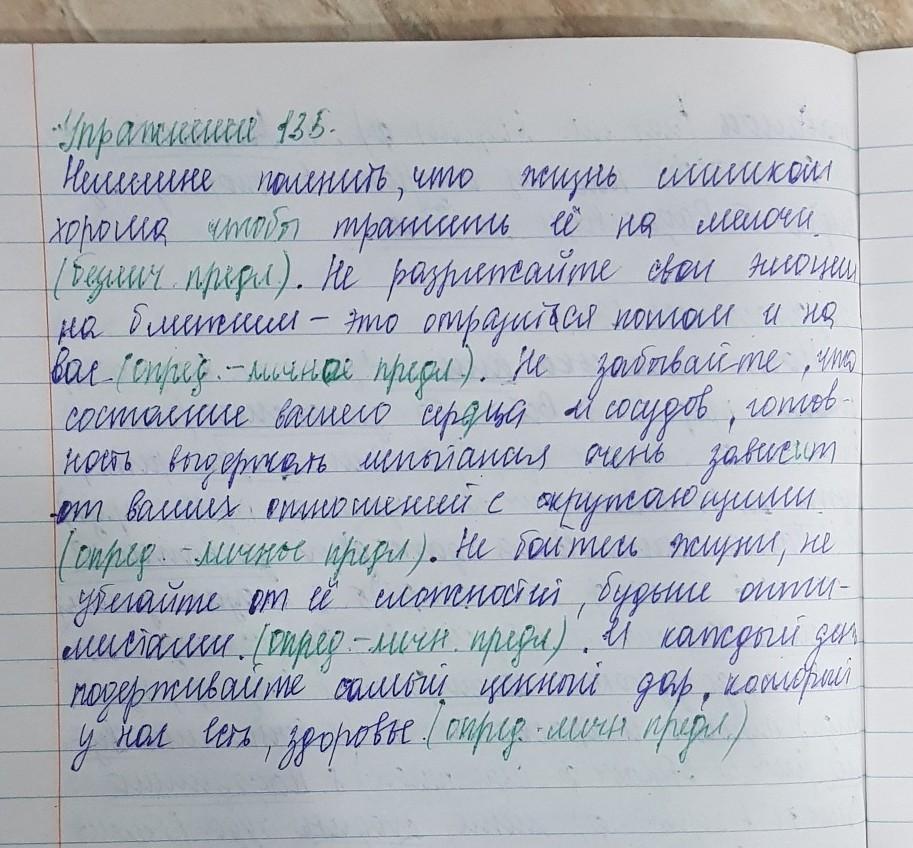 Упражнение 135.
Неплохо помнить, что жизнь слишком
хороша чтобы тратить её на мелочи
(безлич. предл). Не разряжайте свои эмоции
на ближних – это отразится потом и на
вас (опред. – личное предл). Не забывайте, что
состояние вашего сердца и сосудов, готов-
ность выдержать испытания очень зависит
от ваших отношений с окружающими
(опред. – личные предл). Не бойтесь жизни, не
убегайте от её сложностей, будьте опти-
мистами. (опред – личн. предл). И каждый день
подерживайте самый ценный дар, который
у нас есть, здоровье. (опред. – личн предл.)